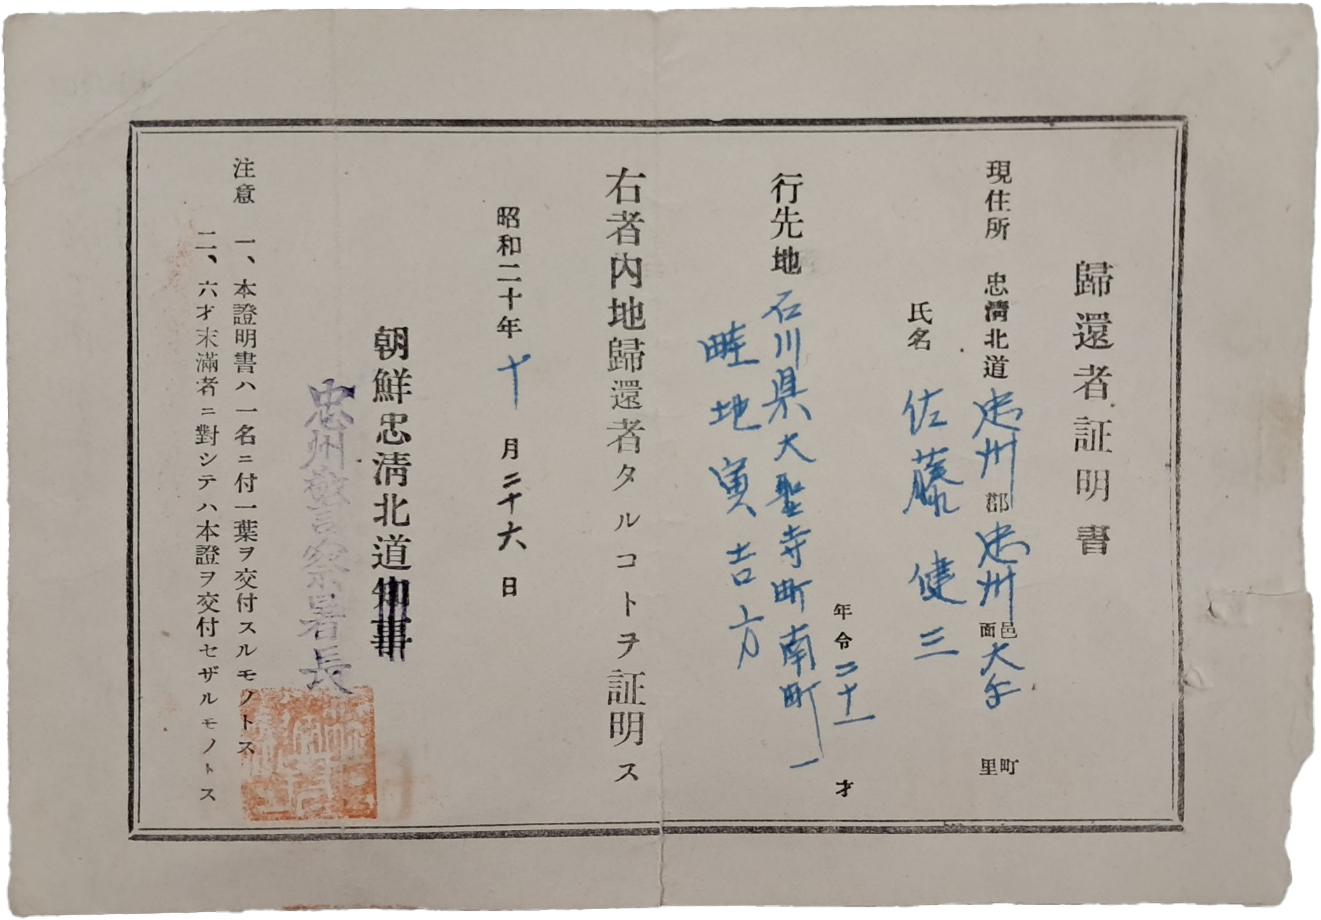 歸還者証明書
現住所 忠清北道忠州郡忠州邑面大手町里
氏名 佐藤健三
年令二十一才
行先地石川県大聖寺町南町一
畦地寅吉方
右者内地歸還者タルコトヲ証明ス
昭和二十年十月二十六日
朝鮮忠清北道知事
忠州警察署長
注意 一、本證明書ハ一名ニ付一葉ヲ交付スルモノトス
二、六才末滿者ニ對シテハ本證ヲ交付セザルモノトス